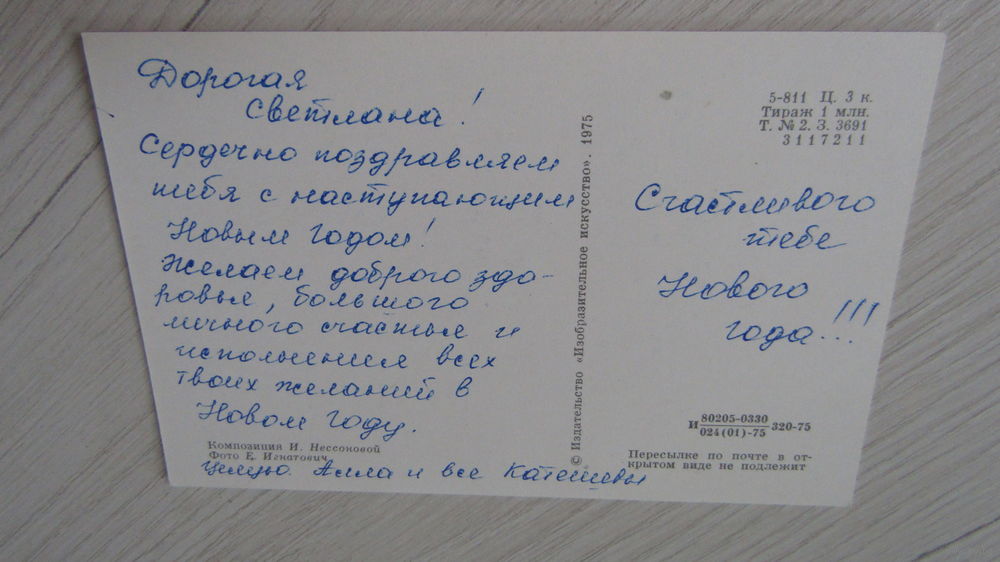 Дорогая
Светлана!
Сердечно поздравляем
тебя с наступающим
Новым Годом!
Желаем доброго здо-
ровья, большого
личного счастья и
исполнения всех
твоих желаний в
Новом Году.
Композиция И. Нессоновой
Фото Е. Игнатович
Целую. Алла и все
© Издательство «Изобразительное искусство». 1975
5-811 Ц. 3 к.
Тираж 1 млн.
Т. № 2. З. 3691
3117211
Счастливого
тебе
Нового
года...!!!
И 80205-0330
024(01)-75 320-75
Пересылке по почте в от-
крытом виде не подлежит